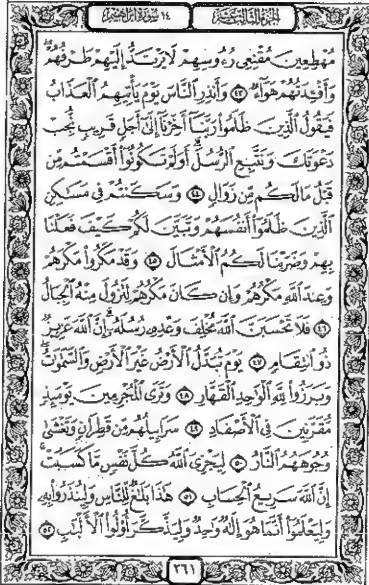 الجزء الثالث عشر
١٤ سورة إبراهيم
مُهْطِعِينَ مُقْنِعِى رُءُوسِهِمْ لَا يَرْتَدُّ إِلَيْهِمْ طَرْفُهُمْ ۖ
وَأَفْـِٔدَتُهُمْ هَوَآءٌ ٤٣ وَأَنذِرِ ٱلنَّاسَ يَوْمَ يَأْتِيهِمُ ٱلْعَذَابُ
فَيَقُولُ ٱلَّذِينَ ظَلَمُوا۟ رَبَّنَآ أَخِّرْنَآ إِلَىٰٓ أَجَلٍ قَرِيبٍ نُّجِبْ
دَعْوَتَكَ وَنَتَّبِعِ ٱلرُّسُلَ ۗ أَوَلَمْ تَكُونُوٓا۟ أَقْسَمْتُم مِّن
قَبْلُ مَا لَكُم مِّن زَوَالٍ ٤٤ وَسَكَنتُمْ فِى مَسَـٰكِنِ
ٱلَّذِينَ ظَلَمُوٓا۟ أَنفُسَهُمْ وَتَبَيَّنَ لَكُمْ كَيْفَ فَعَلْنَا
بِهِمْ وَضَرَبْنَا لَكُمُ ٱلْأَمْثَالَ ٤٥ وَقَدْ مَكَرُوا۟ مَكْرَهُمْ
وَعِندَ ٱللَّهِ مَكْرُهُمْ وَإِن كَانَ مَكْرُهُمْ لِتَزُولَ مِنْهُ ٱلْجِبَالُ
٤٦ فَلَا تَحْسَبَنَّ ٱللَّهَ مُخْلِفَ وَعْدِهِۦ رُسُلَهُۥٓ ۗ إِنَّ ٱللَّهَ عَزِيزٌ
ذُو ٱنتِقَامٍ ٤٧ يَوْمَ تُبَدَّلُ ٱلْأَرْضُ غَيْرَ ٱلْأَرْضِ وَٱلسَّمَـٰوَٰتُ ۖ
وَبَرَزُوا۟ لِلَّهِ ٱلْوَٰحِدِ ٱلْقَهَّارِ ٤٨ وَتَرَى ٱلْمُجْرِمِينَ يَوْمَئِذٍ
مُّقَرَّنِينَ فِى ٱلْأَصْفَادِ ٤٩ سَرَابِيلُهُم مِّن قَطِرَانٍ وَتَغْشَىٰ
وُجُوهَهُمُ ٱلنَّارُ ٥٠ لِيَجْزِىَ ٱللَّهُ كُلَّ نَفْسٍ مَّا كَسَبَتْ ۚ
إِنَّ ٱللَّهَ سَرِيعُ ٱلْحِسَابِ ٥١ هَـٰذَا بَلَـٰغٌ لِّلنَّاسِ وَلِيُنذَرُوا۟ بِهِۦ
وَلِيَعْلَمُوٓا۟ أَنَّمَا هُوَ إِلَـٰهٌ وَٰحِدٌ وَلِيَذَّكَّرَ أُو۟لُوا۟ ٱلْأَلْبَـٰبِ ٥٢
٢٦١